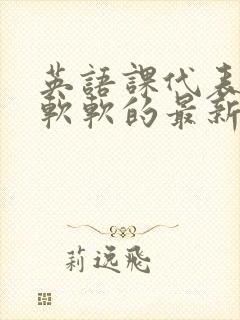 英語課代表
軟軟的最新
莉逸飛